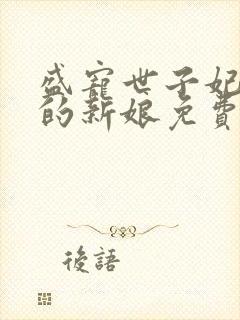 盛寵世子妃
的新娘免費
後語